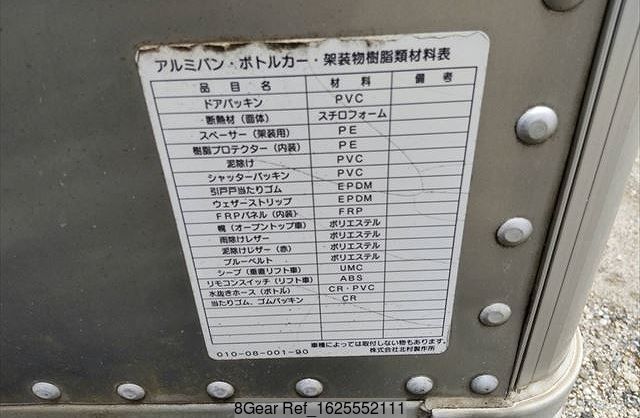 アルミバン・ボトルカー・架装物樹脂類材料表
品目名 材料 備考
ドアパッキン PVC
断熱材(面体) スチロフォーム
スペーサー(架装用) PE
樹脂プロテクター(内装) PE
泥除け PVC
シャッターパッキン PVC
引戸戸当たりゴム EPDM
ウェザーストリップ EPDM
FRPパネル(内装) FRP
幌(オープントップ車) ポリエステル
雨除けレザー ポリエステル
泥除けレザー(赤) ポリエステル
ブルーベルト ポリエステル
シーブ(垂直リフト車) UMC
リモコンスイッチ(リフト車) ABS
水抜きホース(ボトル) CR・PVC
当たりゴム、ゴムパッキン CR
車種によっては取付しない物もあります。
010-08-001-90 株式会社北村製作所
8Gear Ref_1625552111